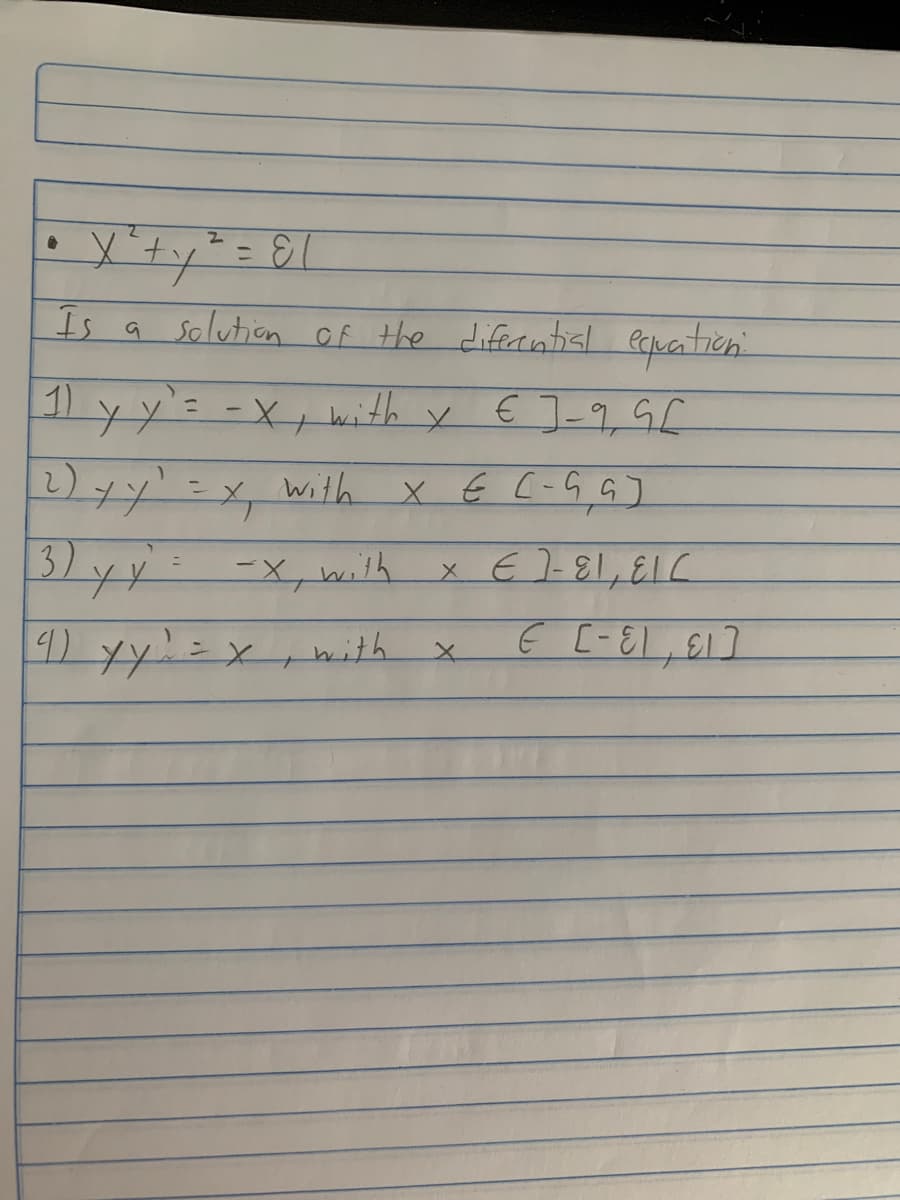 • x²+y² = 81
Is a solution of the diferential equation:
1) y y' = -x, with x ∈ ]-9, 9[
2) y y' = x, with x ∈ [-9, 9]
3) y y' = -x, with x ∈ ]-81, 81[
4) y y' = x, with x ∈ [-81, 81]